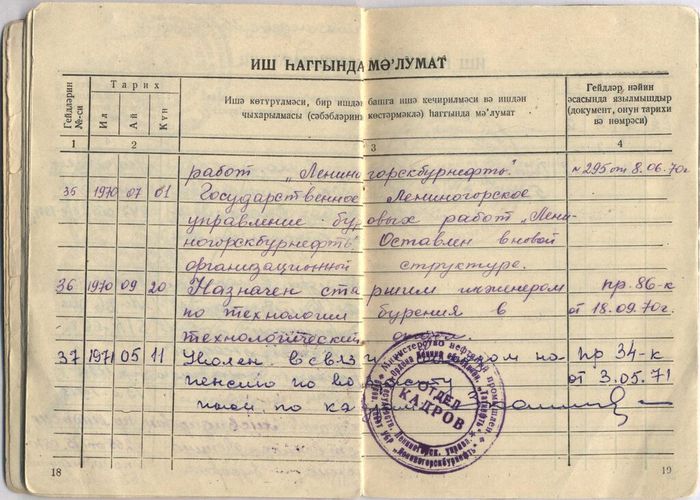 ИШ ҺАГГЫНДА МӘ’ЛУМАТ
Гейдләрин №-си
Тарих
Ил
Ай
Күн
Ишә көтүрүлмәси, бир ишдән башга ишә кечирилмәси вә ишдән
чыхарылмасы (сәбәбләрини көстәрмәклә) һаггында мә’лумат
Гейдләр, нәйин
әсасында язылмышдыр
(документ, онун тарихи
вә нөмрәси)
1 2 3 4
работ „Лениногорскбурнефть". №295 от 8.06.70г
35 1970 07 01 Государственное Лениногорское
управление буровых работ „Лени-
ногорскбурнефть" Оставлен в новой
организационной структуре.
36 1970 09 20 Назначен старшим инженером пр. 86-к
по технологии бурения в от 18.09.70г.
технологический
37 1971 05 11 Уволен в связи с на пр 34-к
пенсию по возрасту от 3.05.71
по
Министерство нефтяной промышлен.
ОТДЕЛ
КАДРОВ
„Лениногорскбурнефть"
18
19